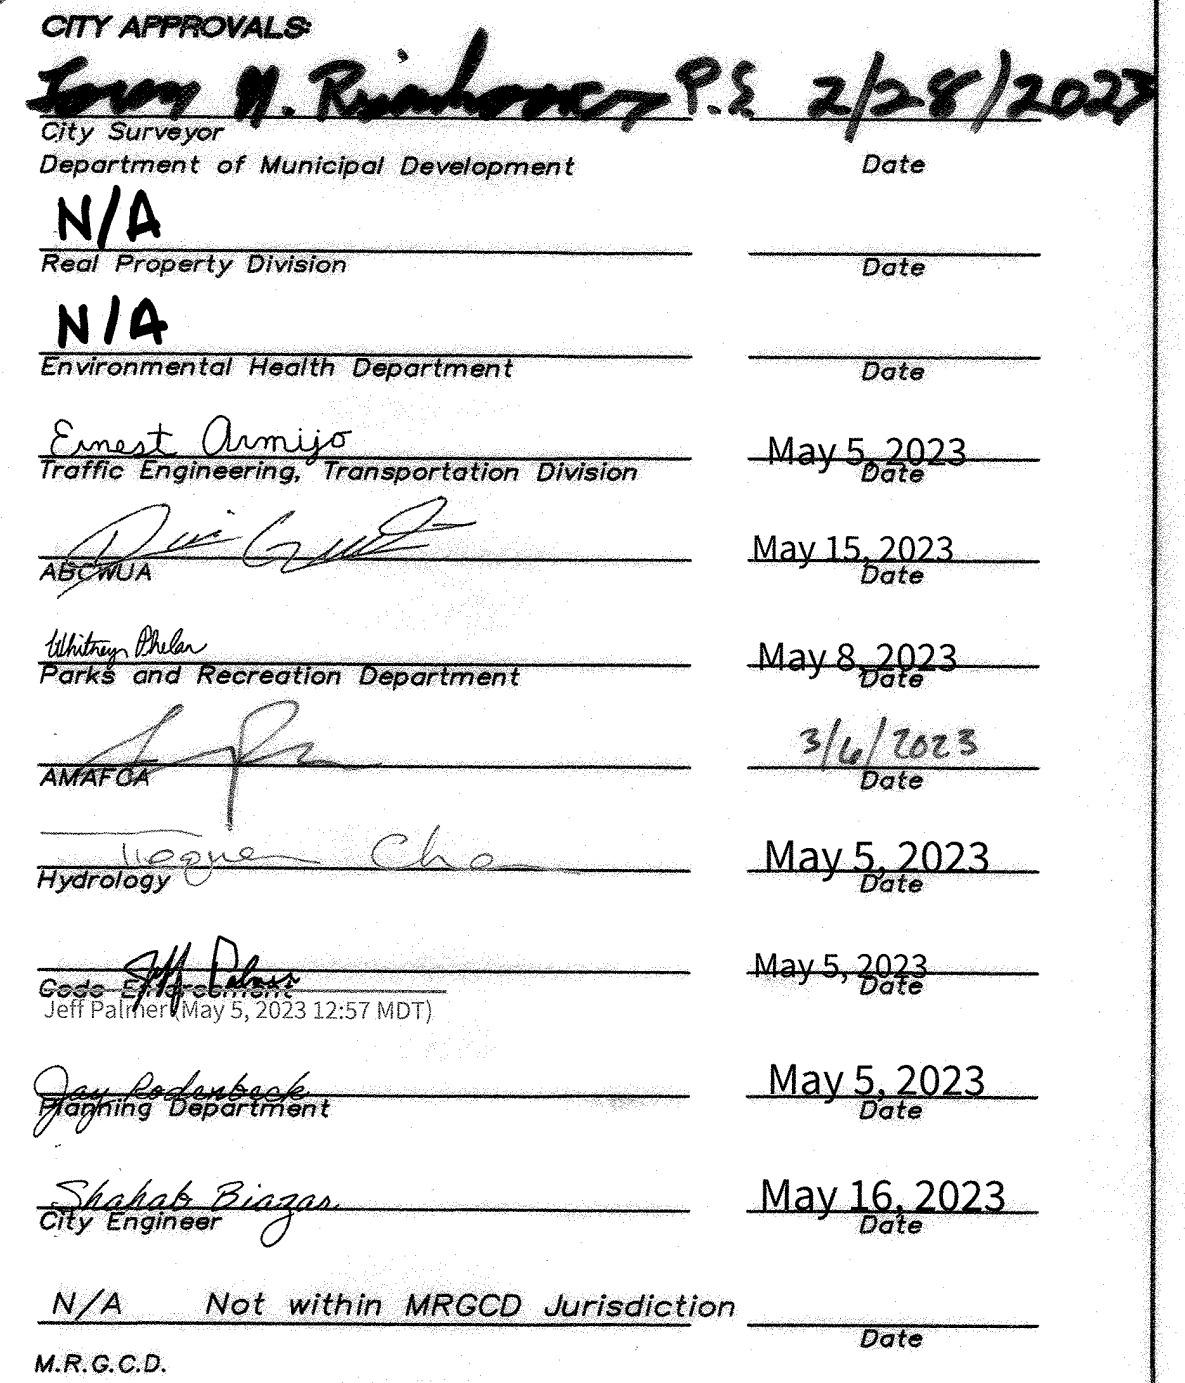 CITY APPROVALS:
N. P.S 2/28/2023
City Surveyor
Department of Municipal Development Date
N/A
Real Property Division Date
N/A
Environmental Health Department Date
Ernest Armijo May 5, 2023
Traffic Engineering, Transportation Division Date
May 15, 2023
ABCWUA Date
Whitney Phelan May 8, 2023
Parks and Recreation Department Date
3/6/2023
AMAFCA Date
May 5, 2023
Hydrology Date
Jeff Palmer May 5, 2023
Code Enforcement Date
Jeff Palmer (May 5, 2023 12:57 MDT)
Jay Rodenbeck May 5, 2023
Planning Department Date
Shahab Biazar May 16, 2023
City Engineer Date
N/A Not within MRGCD Jurisdiction
Date
M.R.G.C.D.